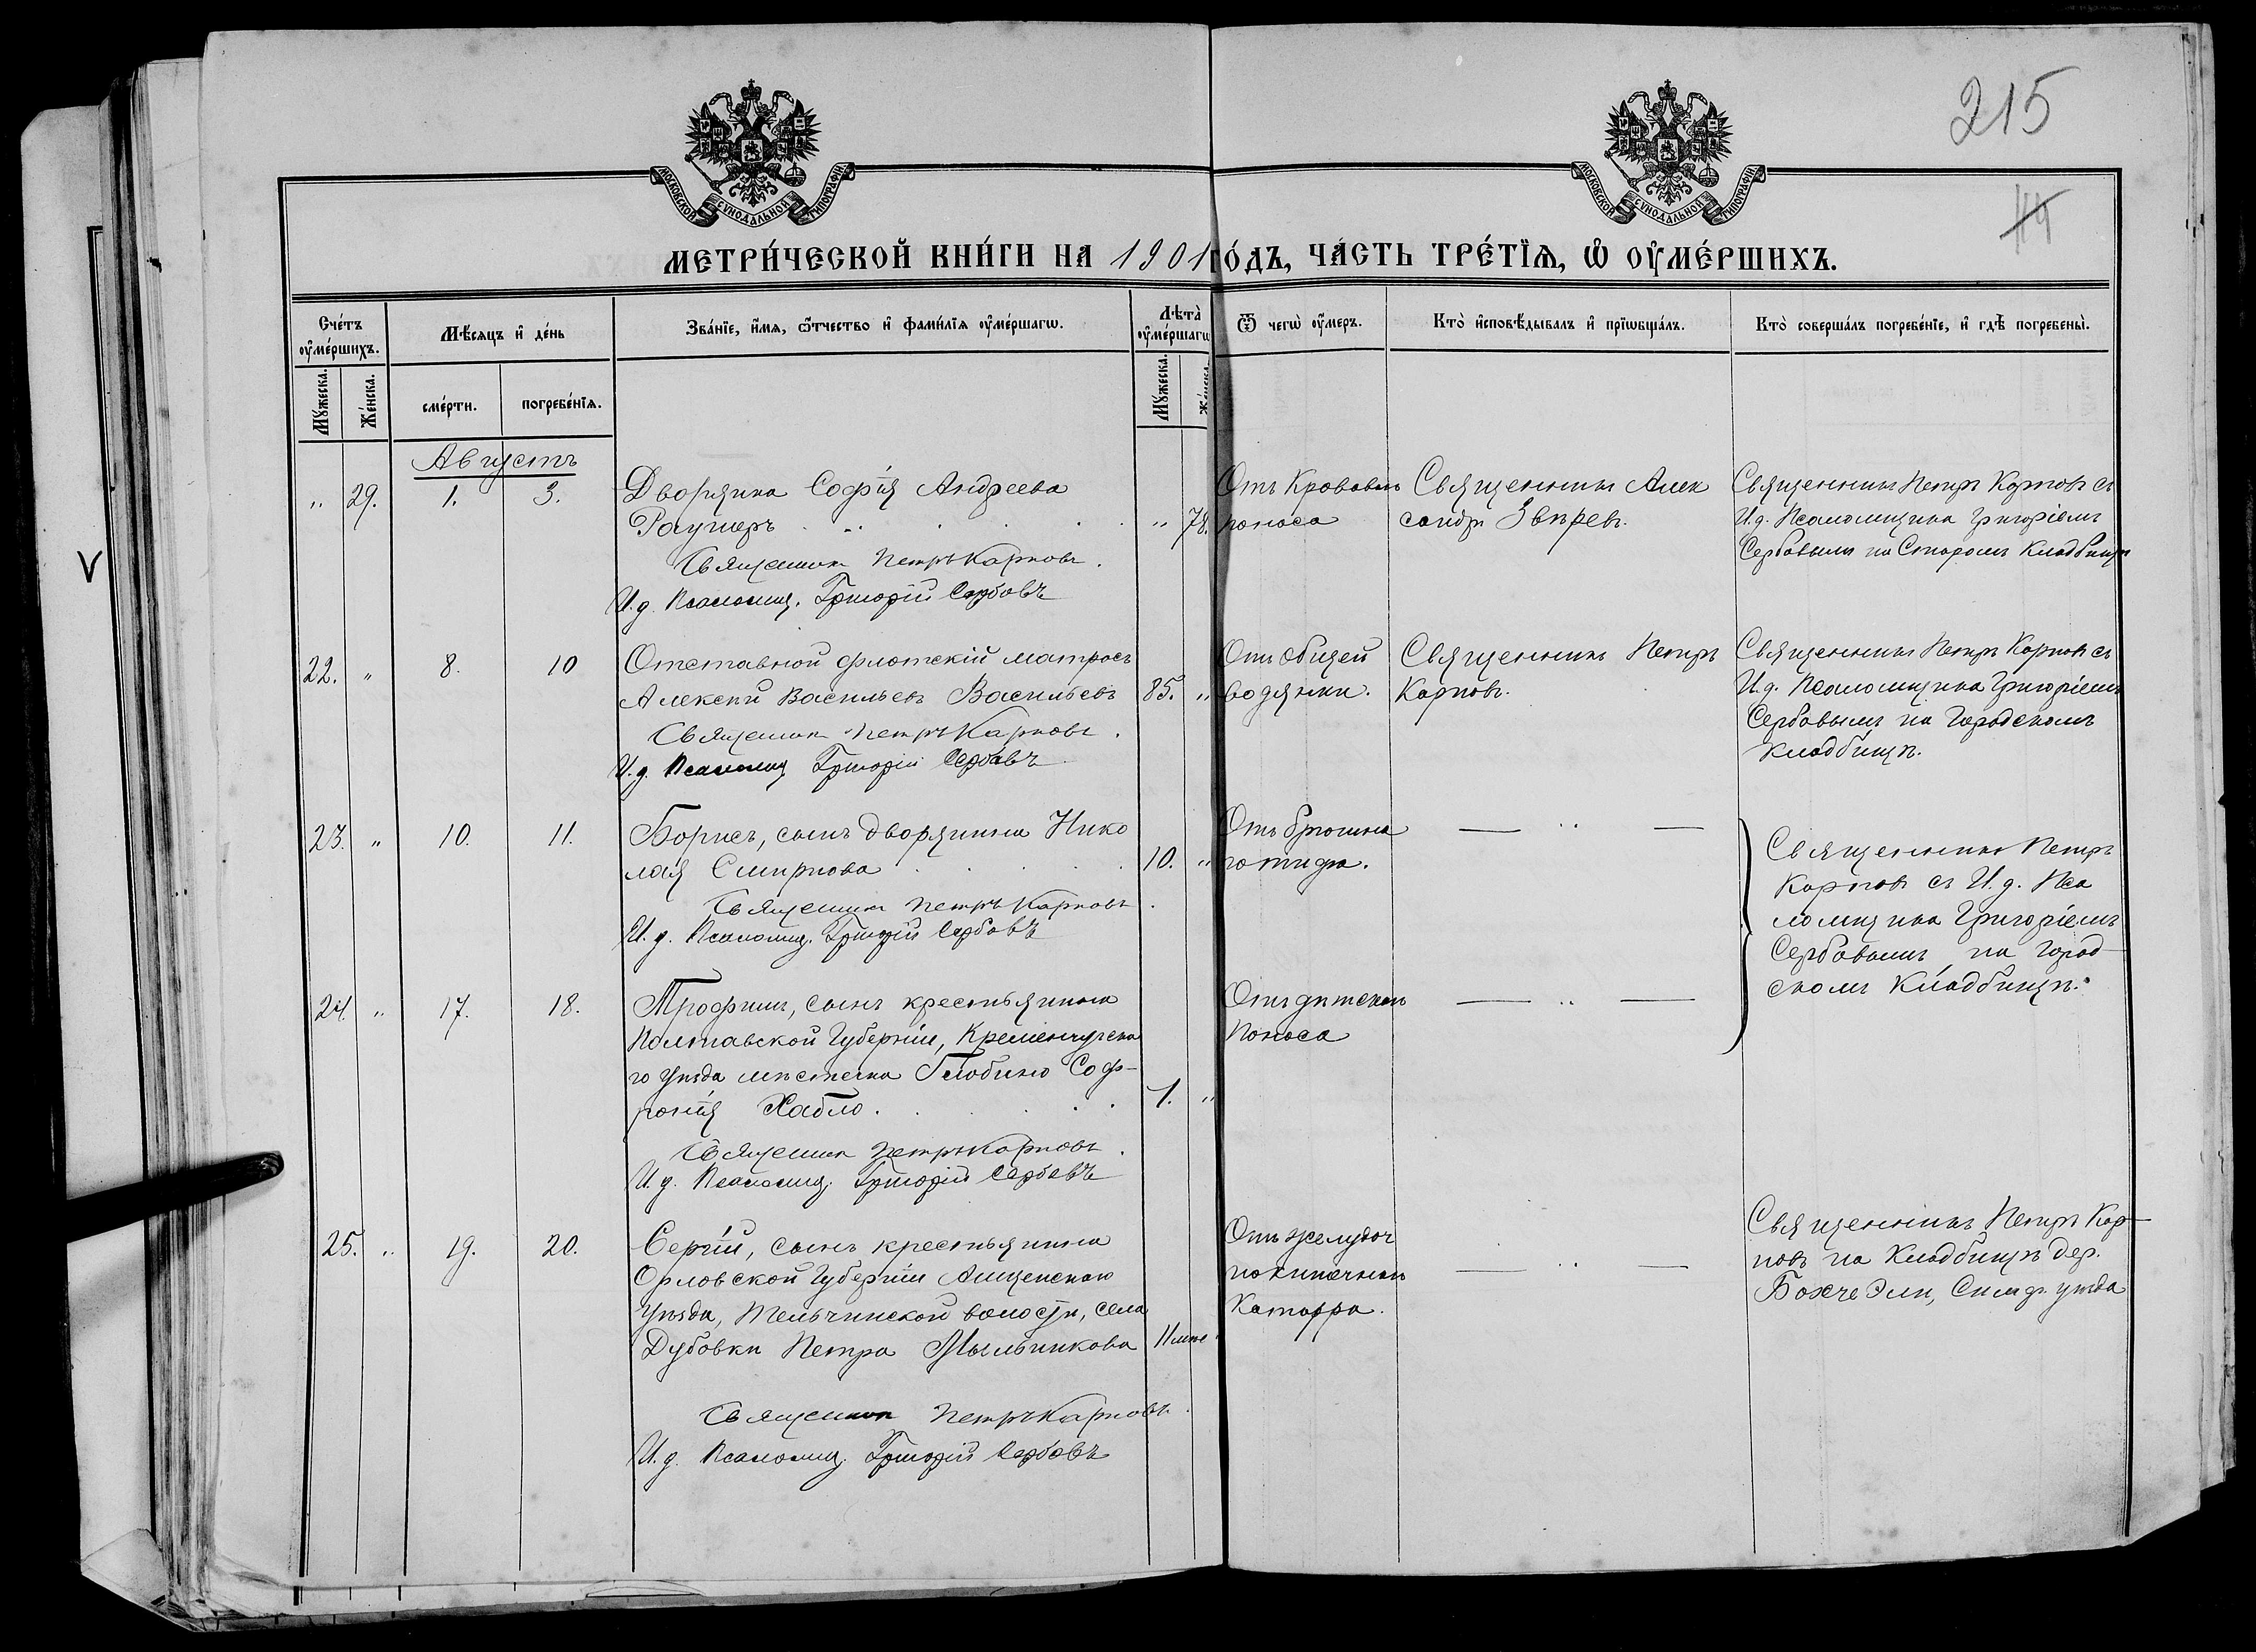 215
МОСКОВСКОЙ СУНОДАЛЬНОЙ ТИПОГРАФІИ.
МОСКОВСКОЙ СУНОДАЛЬНОЙ ТИПОГРАФІИ.
МЕТРИ́ЧЕСКОЙ КНИ́ГИ НА 1901 ГО́ДЪ, ЧА́СТЬ ТРЕ́ТЇѦ, Ѡ҆ ОУ҆МЕ́РШИХЪ.
Сче́тъ оу҆ме́ршихъ.
Мѣ́сяцъ и҆ де́нь
Зва́нїе, и҆́мя, ѻ҆́тчество и҆ фами́лїя оу҆ме́ршагѡ.
Лѣта̀ оу҆ме́ршагѡ
Ѿ чегѡ̀ оу҆́меръ.
Кто̀ и҆сповѣ́дывалъ и҆ прїѡбща́лъ.
Кто̀ соверша́лъ погребе́нїе, и҆ гдѣ̀ погребены̀.
Мꙋ́жеска.
Же́нска.
сме́рти.
погребе́нїя.
Мꙋ́жеска.
Же́нска.
Августъ
„ 29. 1. 3. Дворянка Софія Андреева
„ 78.
Священникъ Петръ Карповъ.
И.д. Псаломщ. Григорій Сербовъ
Отъ Кроваваго
поноса
Священникъ Алек
сандръ Звѣревъ.
Священникъ Петръ Карповъ съ
И.д. Псаломщика Григоріемъ
Сербовымъ на Старомъ Кладбищѣ
22. „ 8. 10 Отставной флотскій матросъ
Алексѣй Васильевъ Васильевъ 85. „
Священникъ Петръ Карповъ.
И.д. Псаломщ Григорій Сербовъ
Отъ общей
водянки.
Священникъ Петръ
Карповъ.
Священникъ Петръ Карповъ съ
И.д. Псаломщика Григоріемъ
Сербовымъ на Городскомъ
Кладбищѣ.
23. „ 10. 11. Борисъ, сынъ дворянина Нико
лая Смирнова 10. „
Священникъ Петръ Карповъ.
И.д. Псаломщ. Григорій Сербовъ
Отъ брюшна
го тифа.
— „ —
Священникъ Петръ
Карповъ съ И.д. Пса
ломщика Григоріемъ
Сербовымъ на Город-
скомъ Кладбищѣ.
24. „ 17. 18. Трофимъ, сынъ крестьянина
Полтавской Губерніи, Кременчугска
го уѣзда мѣстечка Глобино Соф-
ронія Хабло. 1. „
Священникъ Петръ Карповъ.
И.д. Псаломщ. Григорій Сербовъ
Отъ дѣтскаго
Поноса
— „ —
25. „ 19. 20. Сергій, сынъ крестьянина
Орловской Губерніи Мценскаго
Уѣзда, Тельчинской волости, села
Дубовки Петра Мыльникова 11 мѣс
Священникъ Петръ Карповъ.
И.д. Псаломщ. Григорій Сербовъ
Отъ желудоч
покишечнаго
Катарра.
— „ —
Священникъ Петръ Кар-
повъ на Кладбищѣ дер.
Бахче Эли, Симф. уѣзда